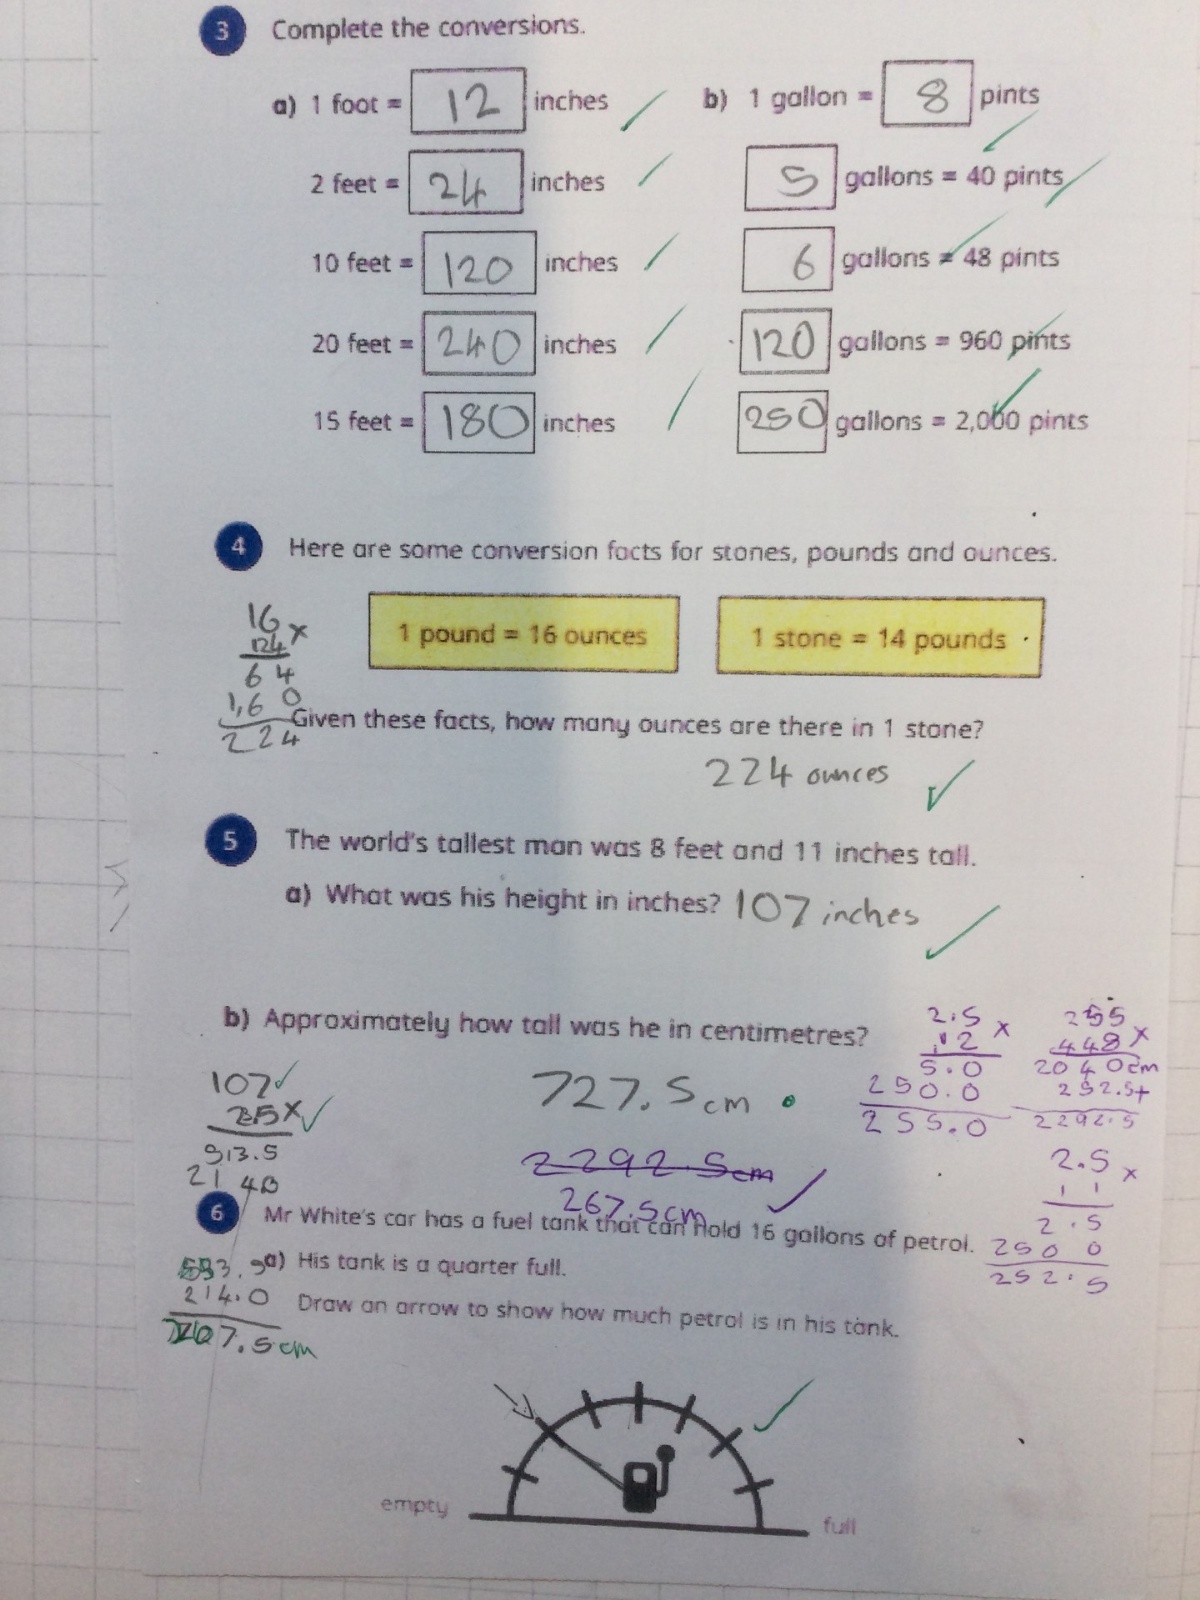 3 Complete the conversions.
a) 1 foot = 12 inches
b) 1 gallon = 8 pints
2 feet = 24 inches
5 gallons = 40 pints
10 feet = 120 inches
6 gallons = 48 pints
20 feet = 240 inches
120 gallons = 960 pints
15 feet = 180 inches
250 gallons = 2,000 pints
4 Here are some conversion facts for stones, pounds and ounces.
1 pound = 16 ounces
1 stone = 14 pounds
16 x
64
1,60
224
Given these facts, how many ounces are there in 1 stone?
224 ounces
5 The world's tallest man was 8 feet and 11 inches tall.
a) What was his height in inches? 107 inches
b) Approximately how tall was he in centimetres?
727.5cm
2292.5cm
267.5cm
107
2.5 x
2140
2.5 x
12
5.0
250.0
255.0
255 x
2040cm
252.5+
2292.5
2.5 x
11
2.5
250 0
252.5
6 Mr White's car has a fuel tank that can hold 16 gallons of petrol.
a) His tank is a quarter full.
Draw an arrow to show how much petrol is in his tank.
214.0
empty
full